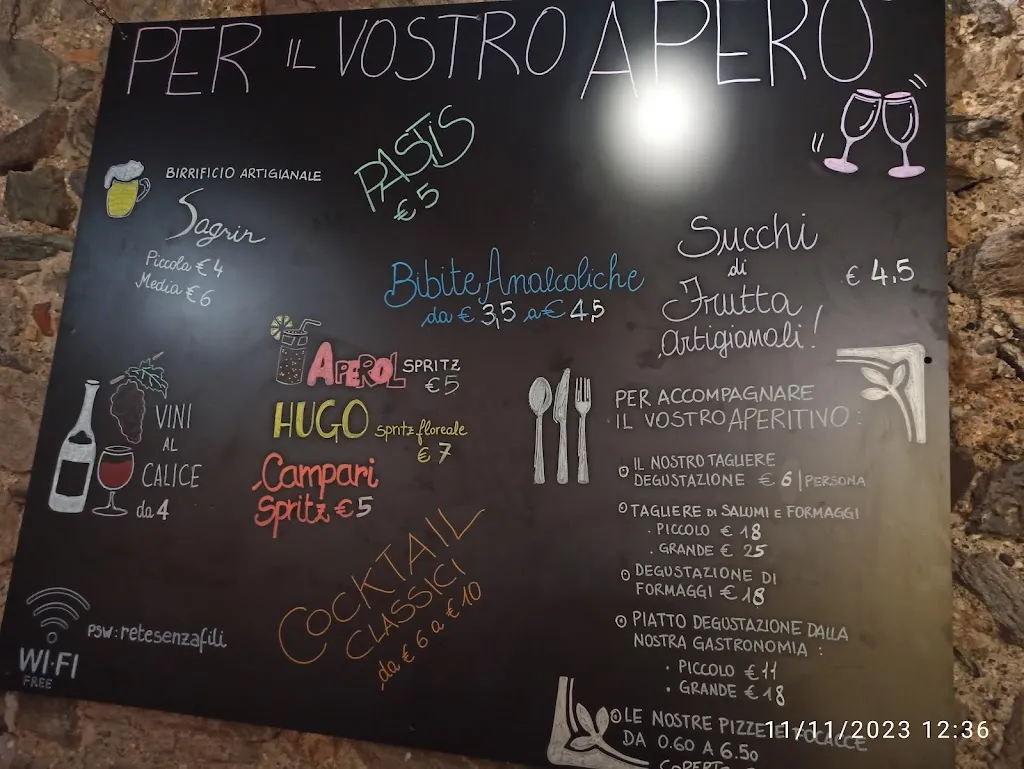 PER IL VOSTRO APERO
PASTIS
€ 5
BIRRIFICIO ARTIGIANALE
Sagrin
Piccola € 4
Media € 6
Bibite Analcoliche
da € 3,5 a € 4,5
Succhi
di
Frutta
artigianali!
€ 4,5
APEROL SPRITZ
€ 5
HUGO spritz floreale
€ 7
Campari
Spritz € 5
VINI
AL
CALICE
da 4
COCKTAIL
CLASSICI
da € 6 a € 10
WI-FI
FREE
PSW: retesenzafili
PER ACCOMPAGNARE
IL VOSTRO APERITIVO:
IL NOSTRO TAGLIERE
DEGUSTAZIONE € 6 | PERSONA
TAGLIERE DI SALUMI E FORMAGGI
. PICCOLO € 18
. GRANDE € 25
DEGUSTAZIONE DI
FORMAGGI € 18
PIATTO DEGUSTAZIONE DALLA
NOSTRA GASTRONOMIA :
• PICCOLO € 11
• GRANDE € 18
LE NOSTRE PIZZE E FOCACCE
DA 0.60 A 6.50
11/11/2023 12:36